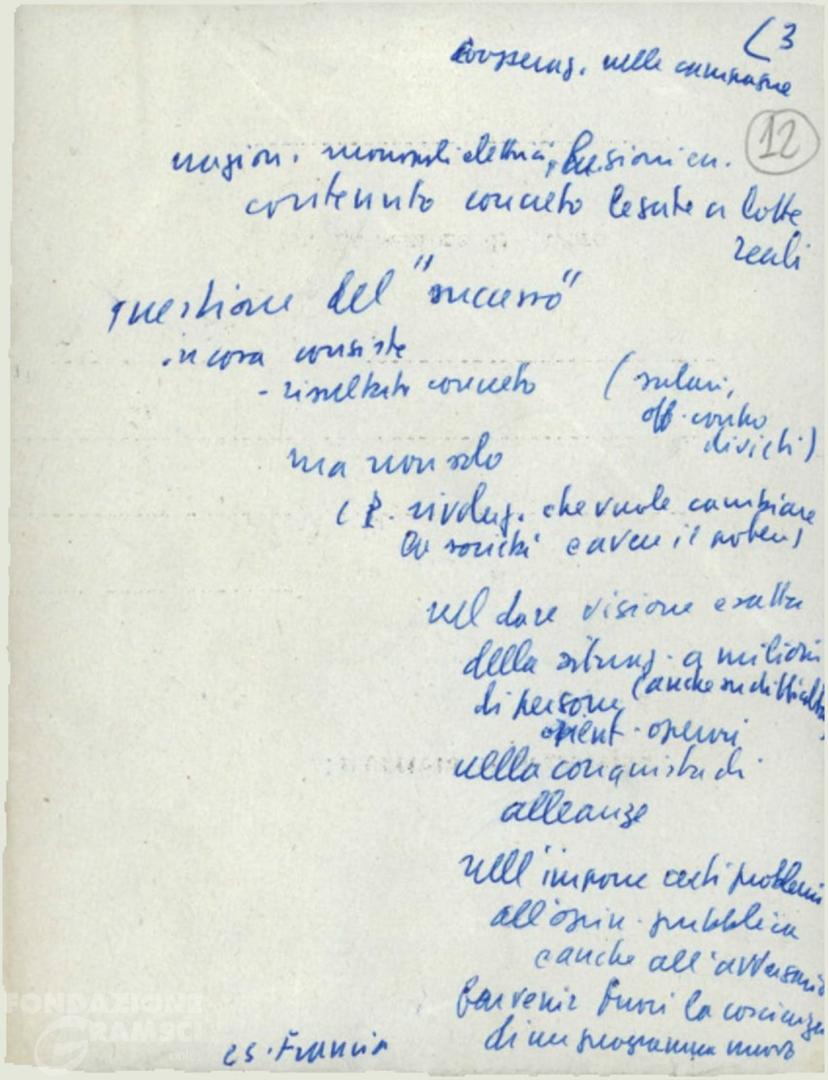 (3
cooperaz. nelle campagne
12
nazion. monopoli elettrici,
contenuto concreto legate a lotte
reali
questione del "successo"
in cosa consiste
- risultato concreto (salari,
off. contro
divieti)
ma non solo
(P. rivoluz. che vuole cambiare
la società e aver il potere)
nel dare visione esatta
della situaz. a milioni
di persone (anche su difficoltà
orient. operai
nella conquista di
alleanze
nell'imporre certi problemi
all'opin. pubblica
e anche all'avversario
far venir fuori la coscienza
di un programma nuovo
es. Francia
FONDAZIONE
GRAMSCI